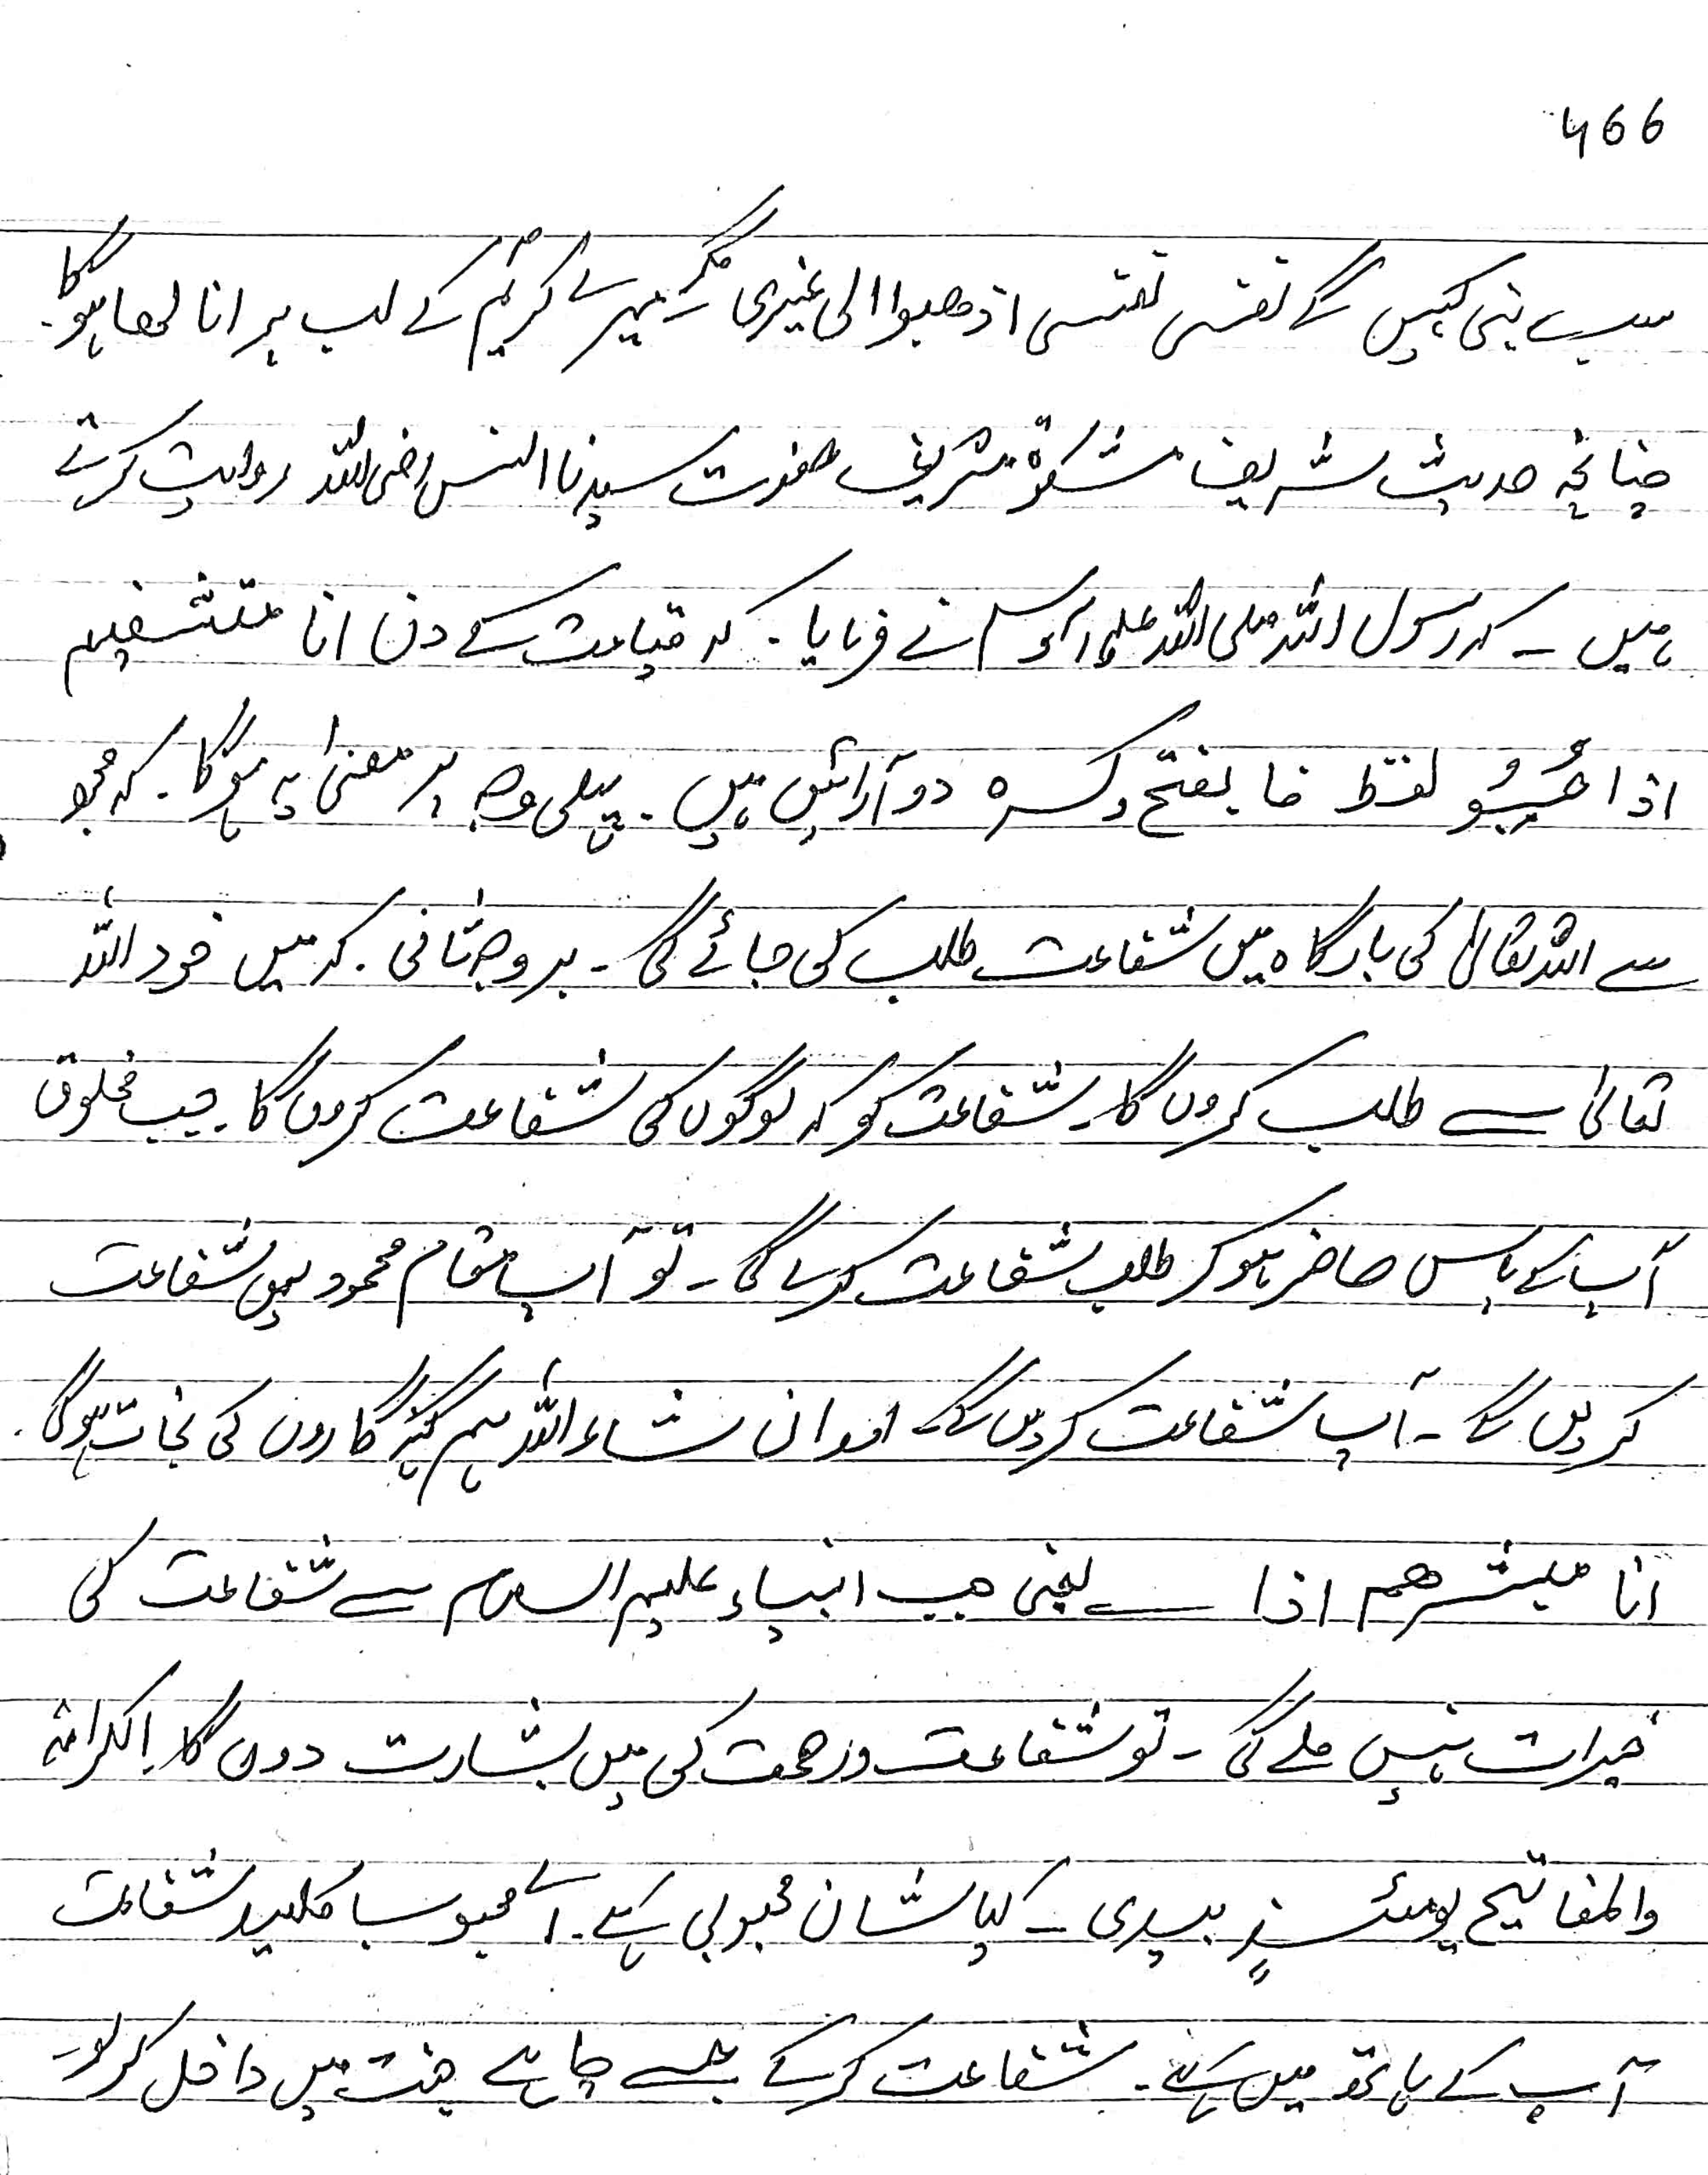 466
سب نبی کہیں گے نفسی نفسی اذھبوا الی غیری مگر میرے کریم کے لب پر انا لھا ہوگا۔
چنانچہ حدیث شریف مشکوٰۃ شریف حضرت سیدنا انس رضی اللہ روایت کرتے
ہیں ۔ کہ رسول اللہ صلی اللہ علیہ وآلہ وسلم نے فرمایا ۔ کہ قیامت کے دن انا مستشفیہم
اذا حُبِسُو لفظ فا بفتح و کسرہ دو آرائیں ہیں ۔ پہلی وجہ پر معنیٰ یہ ہوگا ۔ کہ مجھ
سے اللہ تعالیٰ کی بارگاہ میں شفاعت طلب کی جائے گی ۔ بر وجہ ثانی ۔ کہ میں خود اللہ
تعالیٰ سے طلب کروں گا ۔ شفاعت کو کہ لوگوں کی شفاعت کروں گا ۔ جب مخلوق
آپ کے پاس حاضر ہوکر طلب شفاعت کرے گی ۔ تو آپ مقام محمود میں شفاعت
کریں گے ۔ آپ شفاعت کردیں گے ۔ اور ان شاء اللہ ہم گنہگاروں کی نجات ہوگی ۔
انا مبشرھم اذا یعنی جب انبیاء علیہم السلام سے شفاعت کی
خیرات نہیں ملے گی ۔ تو شفاعت و رحمت کی میں بشارت دوں گا ۔ الکرامۃ
والمفاتیح یومئذٍ بیدی ۔ کیا شان محبوبی ہے ۔ اے محبوب کلید شفاعت
آپ کے ہاتھ میں ہے ۔ شفاعت کرکے جسے چاہے جنت میں داخل کرلو ۔